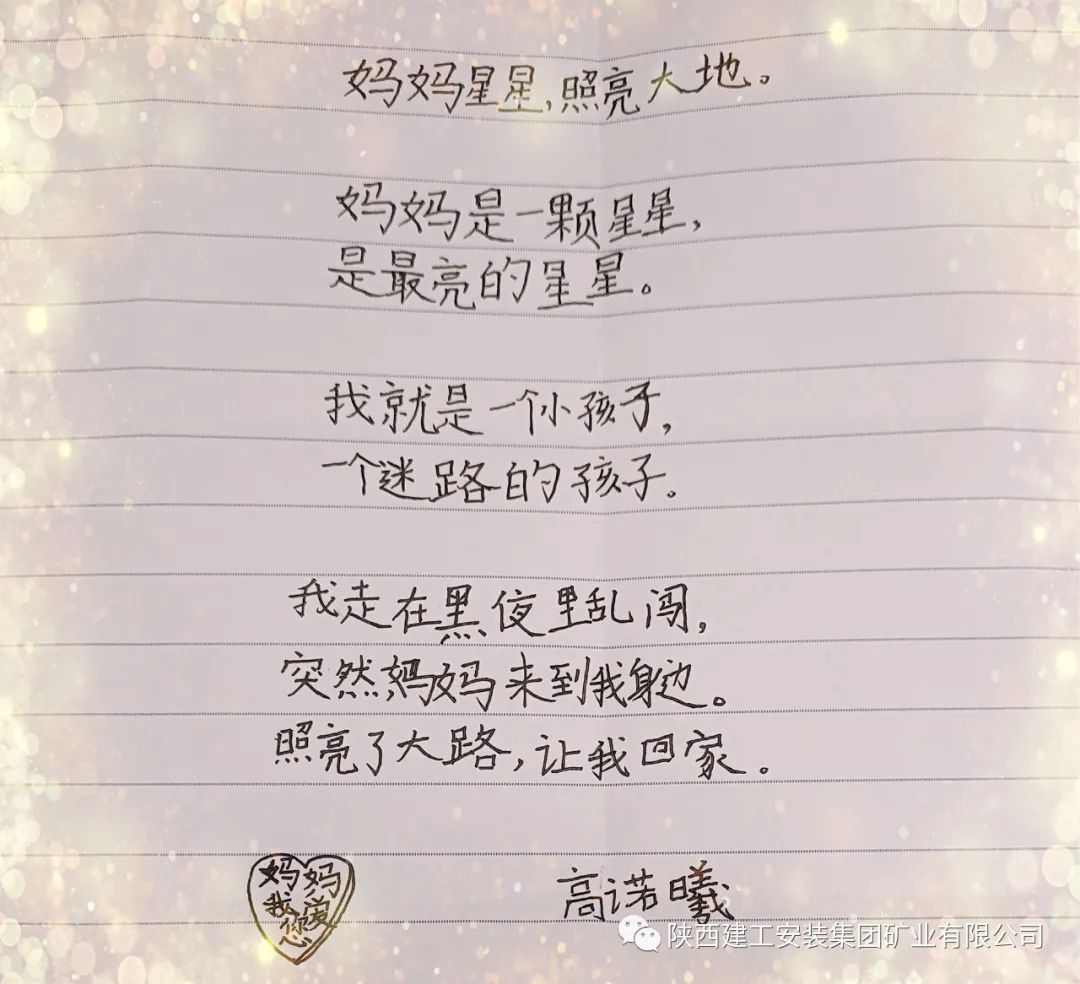 妈妈星星,照亮大地。
妈妈是一颗星星,
是最亮的星星。
我就是一个小孩子,
一个迷路的孩子.
我走在黑夜里乱闯,
突然,妈妈来到我身边。
照亮了大路,让我回家。
妈妈
我爱
您
高诺曦
陕西建工安装集团矿业有限公司